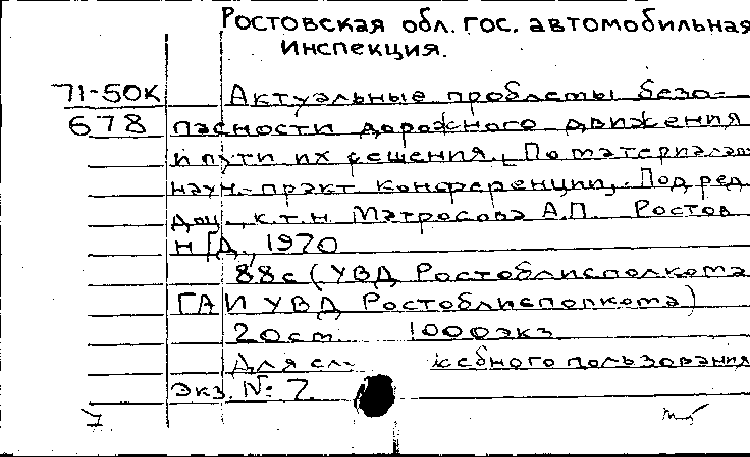 Ростовская обл. гос. автомобильная
инспекция.
71-50к Актуальные проблемы безо-
678 пасности дорожного движения
и пути их решения. [По материалам
науч.-практ конференции]. Под ред.
доц., к.т.н. Матросова А.П. Ростов
н/Д., 1970
88с (УВД Ростоблисполкома
ГАИ УВД Ростоблисполкома)
20см 1000экз
Для сл жебного пользования
Экз. № 7.
7